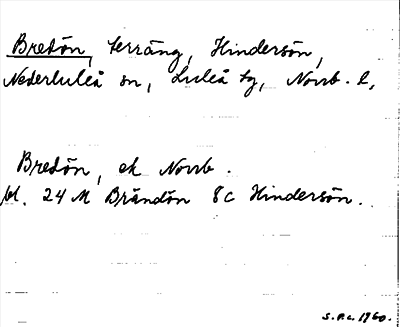 Bredön, terräng, Hindersön,
Nederluleå sn, Luleå tg, Norrb. l,
Bredön, ek Norrb.
bl. 24 M Brändön 8c Hindersön.
S.P.L. 1960.